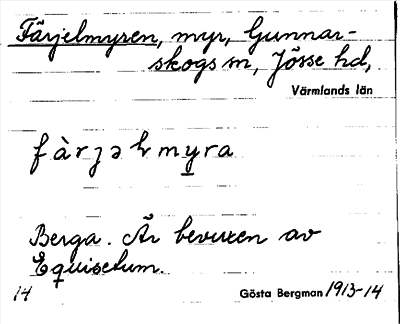 Färjelmyren, myr, Gunnar-
skogs sn, Jösse hd,
Värmlands län
fàrjəlmyra
Berga. Är bevuxen av
Equisetum.
14 Gösta Bergman 1913-14